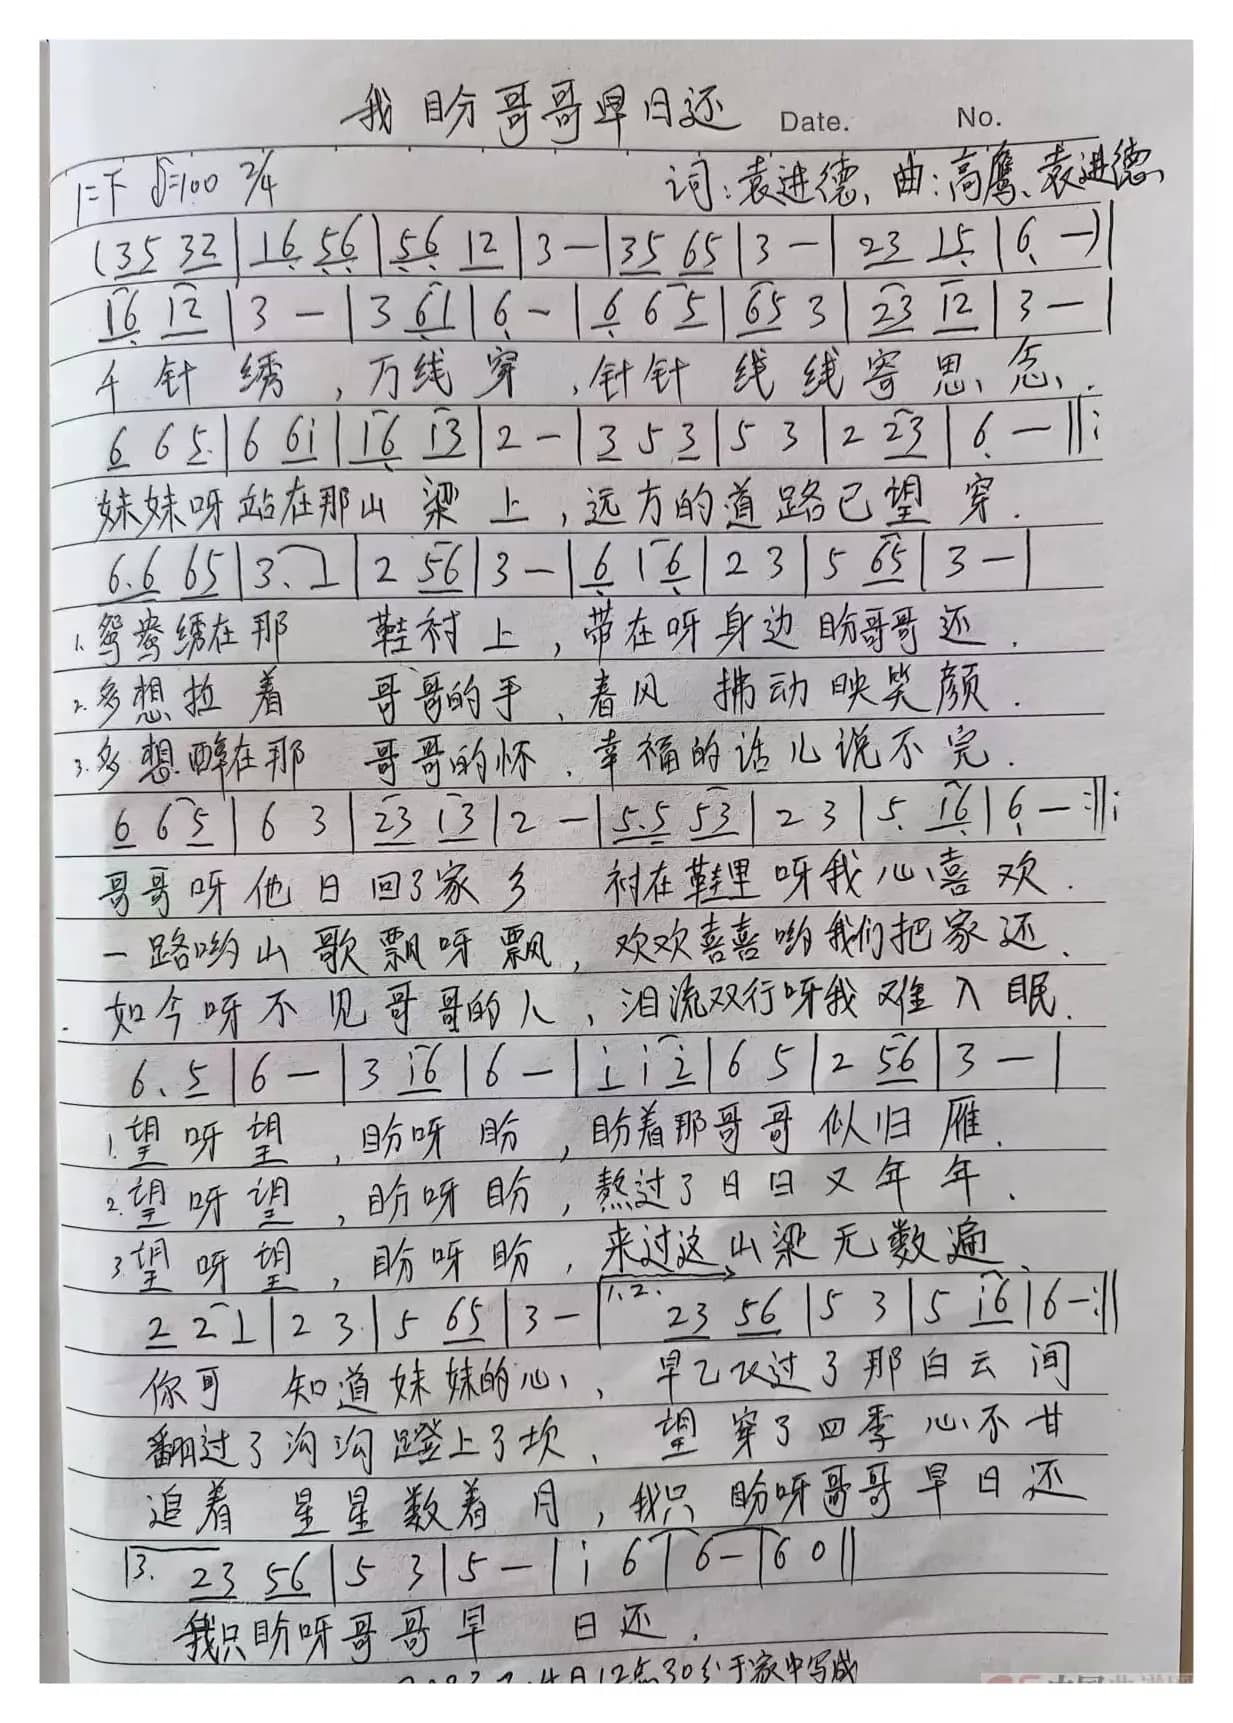 我盼哥哥早日还 Date. No.
1=F ♩=100 2/4 词:袁进德、曲:高鹰、袁进德
(35 32|16 56|56 12|3—|35 65|3—|23 15|6—)|
16 12|3—|3 61|6—|6 6 5|65 3|23 12|3—|
千针绣,万线穿,针针线线寄思念.
6 6 5|6 6i|16 13|2—|3 5 3|5 3|2 23|6—‖:
妹妹呀站在那山梁上,远方的道路已望穿.
6.6 65|3. 1|2 56|3—|6 1 6|2 3|5 65|3—|
1.鸳鸯绣在那 鞋衬上,带在呀身边盼哥哥还.
2.多想拉着 哥哥的手,春风拂动映笑颜.
3.多想醉在那 哥哥的怀,幸福的话儿说不完.
6 6 5|6 3|23 13|2—|5.5 53|2 3|5 16|6—:‖:
哥哥呀他日回了家乡 衬在鞋里呀我心喜欢.
一路哟山歌飘呀飘,欢欢喜喜哟我们把家还.
如今呀不见哥哥的人,泪流双行呀我难入眠.
6. 5|6—|3 i6|6—|i i 2|6 5|2 56|3—|
1.望呀望,盼呀盼,盼着那哥哥似归雁.
2.望呀望,盼呀盼,熬过了日日又年年.
3望呀望,盼呀盼,来过这山梁无数遍.
2 2 1|2 3|5 65|3—|1.2. 23 56|5 3|5 i6|6—:‖
你可 知道妹妹的心,早已飞过了那白云间
翻过了沟沟蹬上了坎,望穿了四季心不甘
追着星星数着月,我只盼呀哥哥早日还
3. 23 56|5 3|5—|i 6|6—|6 0‖
我只盼呀哥哥早 日还.
4月12点30分于家中写成